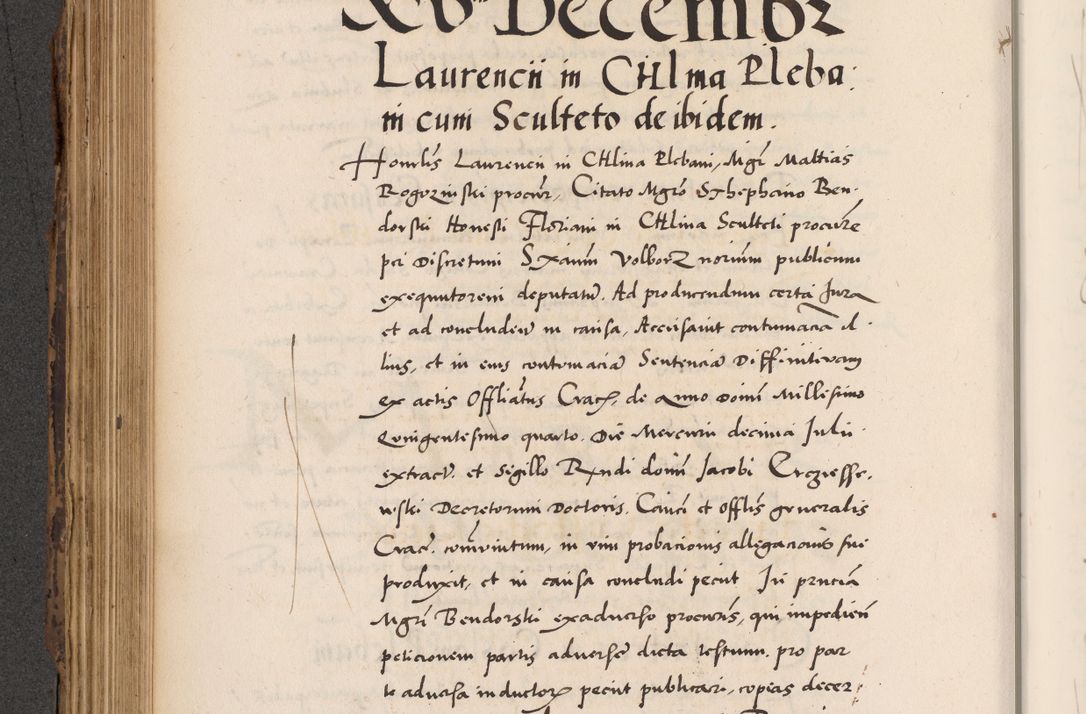 Xv Decembr
Laurencii in CHlma Pleba:
ni cum Sculteto de ibidem.
Honrlis Laurencii in CHlma Plebani, Mgri Mattias
Rogozinski procur, Citato Mgro Sthephano Ben-
dorski Honesti Floriani in CHlma Sculteti procure
per Discretum Stanm Volborz norium publicum
exequutorem deputatu. Ad producendum certa Jura
et ad concludend in causa, Accusavit contumacia il-
lius, et in eius contumacia Sentencia Diffinitivam
ex actis Offliatus Crac, de Anno Domi Millesimo
Quingentesimo quarto. Die Mercurii decima Julii
extract, et Sigillo Rndi domi Jacobi Ercziesse-
wski Decretorum Doctoris. Canci et Offlis generalis
Crac. comunitum, in vim probacionis allegacionis sue
produxit, et in causa concludi peciit In pncia
Mgri Bendorski exadverso procuris, qui impedien
peticionem partis adverse dicta testium pro par
te adversa inductor peciit publicari, copias decer-